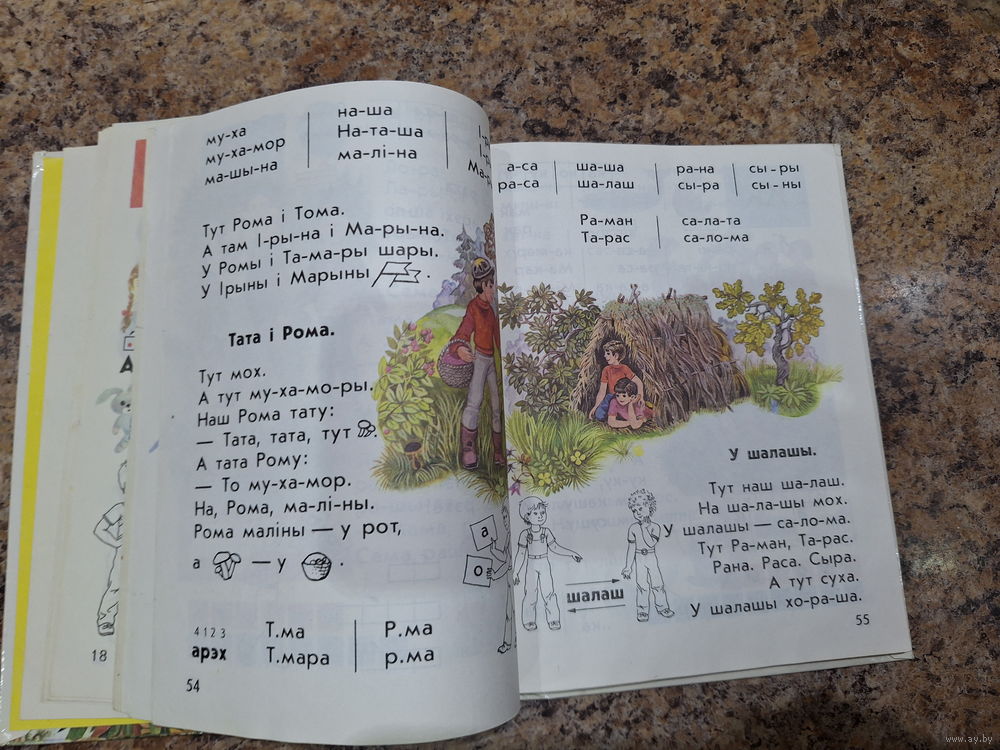 му-ха
му-ха-мор
ма-шы-на
на-ша
На-та-ша
ма-лі-на
Тут Рома і Тома.
А там І-ры-на і Ма-ры-на.
У Ромы і Та-ма-ры шары.
У Ірыны і Марыны .
Тата і Рома.
Тут мох.
А тут му-ха-мо-ры.
Наш Рома тату:
— Тата, тата, тут .
А тата Рому:
— То му-ха-мор.
На, Рома, ма-лі-ны.
Рома маліны — у рот,
а — у .
4 1 2 3
арэх
Т.ма
Т.мара
Р.ма
р.ма
54
18
а-са
ра-са
ша-ша
ша-лаш
ра-на
сы-ра
сы - ры
сы - ны
Ра-ман
Та-рас
са-ла-та
са-ло-ма
У шалашы.
Тут наш ша-лаш.
На ша-ла-шы мох.
У шалашы — са-ло-ма.
Тут Ра-ман, Та-рас.
Рана. Раса. Сыра.
А тут суха.
У шалашы хо-ра-ша.
а
о
шалаш
55
www.ay.by